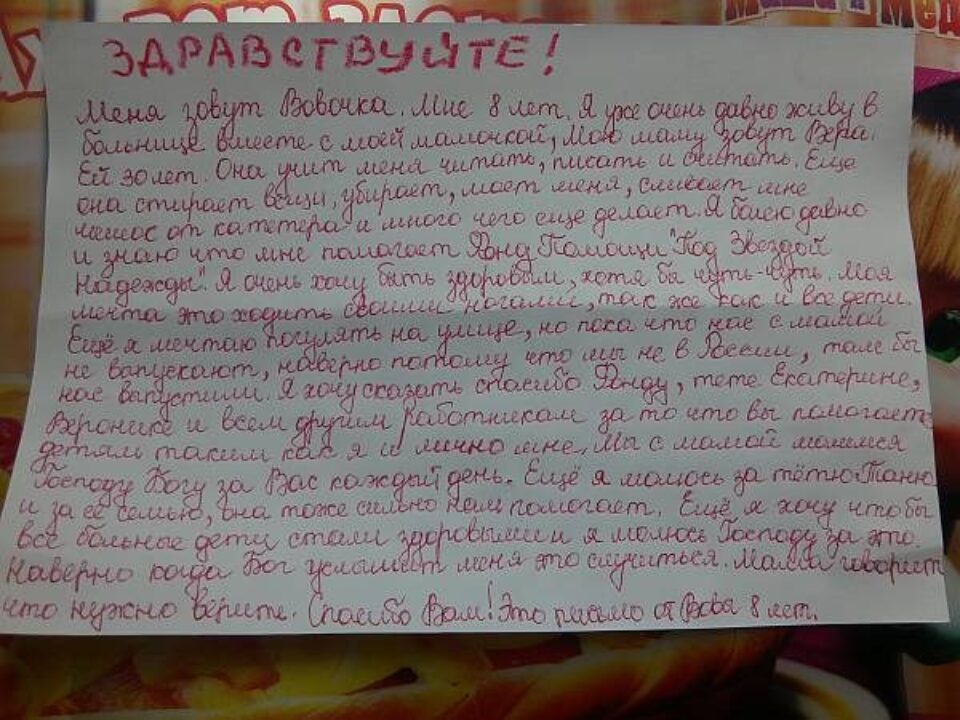 Маша и Мед
ЗДРАВСТВУЙТЕ!
Меня зовут Вовочка. Мне 8 лет. Я уже очень давно живу в
больнице вместе с моей мамочкой, Мою маму зовут Вера.
Ей 30 лет. Она учит меня читать, писать и считать. Еще
она стирает вещи, убирает, моет меня, сливает мне
от катетера и много чего еще делает. Я болею давно
и знаю что мне помогает Фонд Помощи "Под Звездой
Надежды". Я очень хочу быть здоровым, хотя бы чуть-чуть. Моя
мечта это ходить своими ногами, так же как и все дети.
Ещё я мечтаю погулять на улице, но пока что нас с мамой
не выпускают, наверно потому что мы не в России, там бы
нас выпустили. Я хочу сказать спасибо Фонду, тете Екатерине,
Веронике и всем другим работникам за то что вы помогаете
детям таким как я и лично мне. Мы с мамой молимся
Господу Богу за Вас каждый день. Ещё я молюсь за тётю Таню
и за её семью, она тоже сильно нам помогает. Ещё я хочу чтобы
все больные дети стали здоровыми и я молюсь Господу за это.
Наверно когда Бог услышит меня это случиться. Мама говорит
что нужно верить. Спасибо Вам! Это письмо от Вова 8 лет.